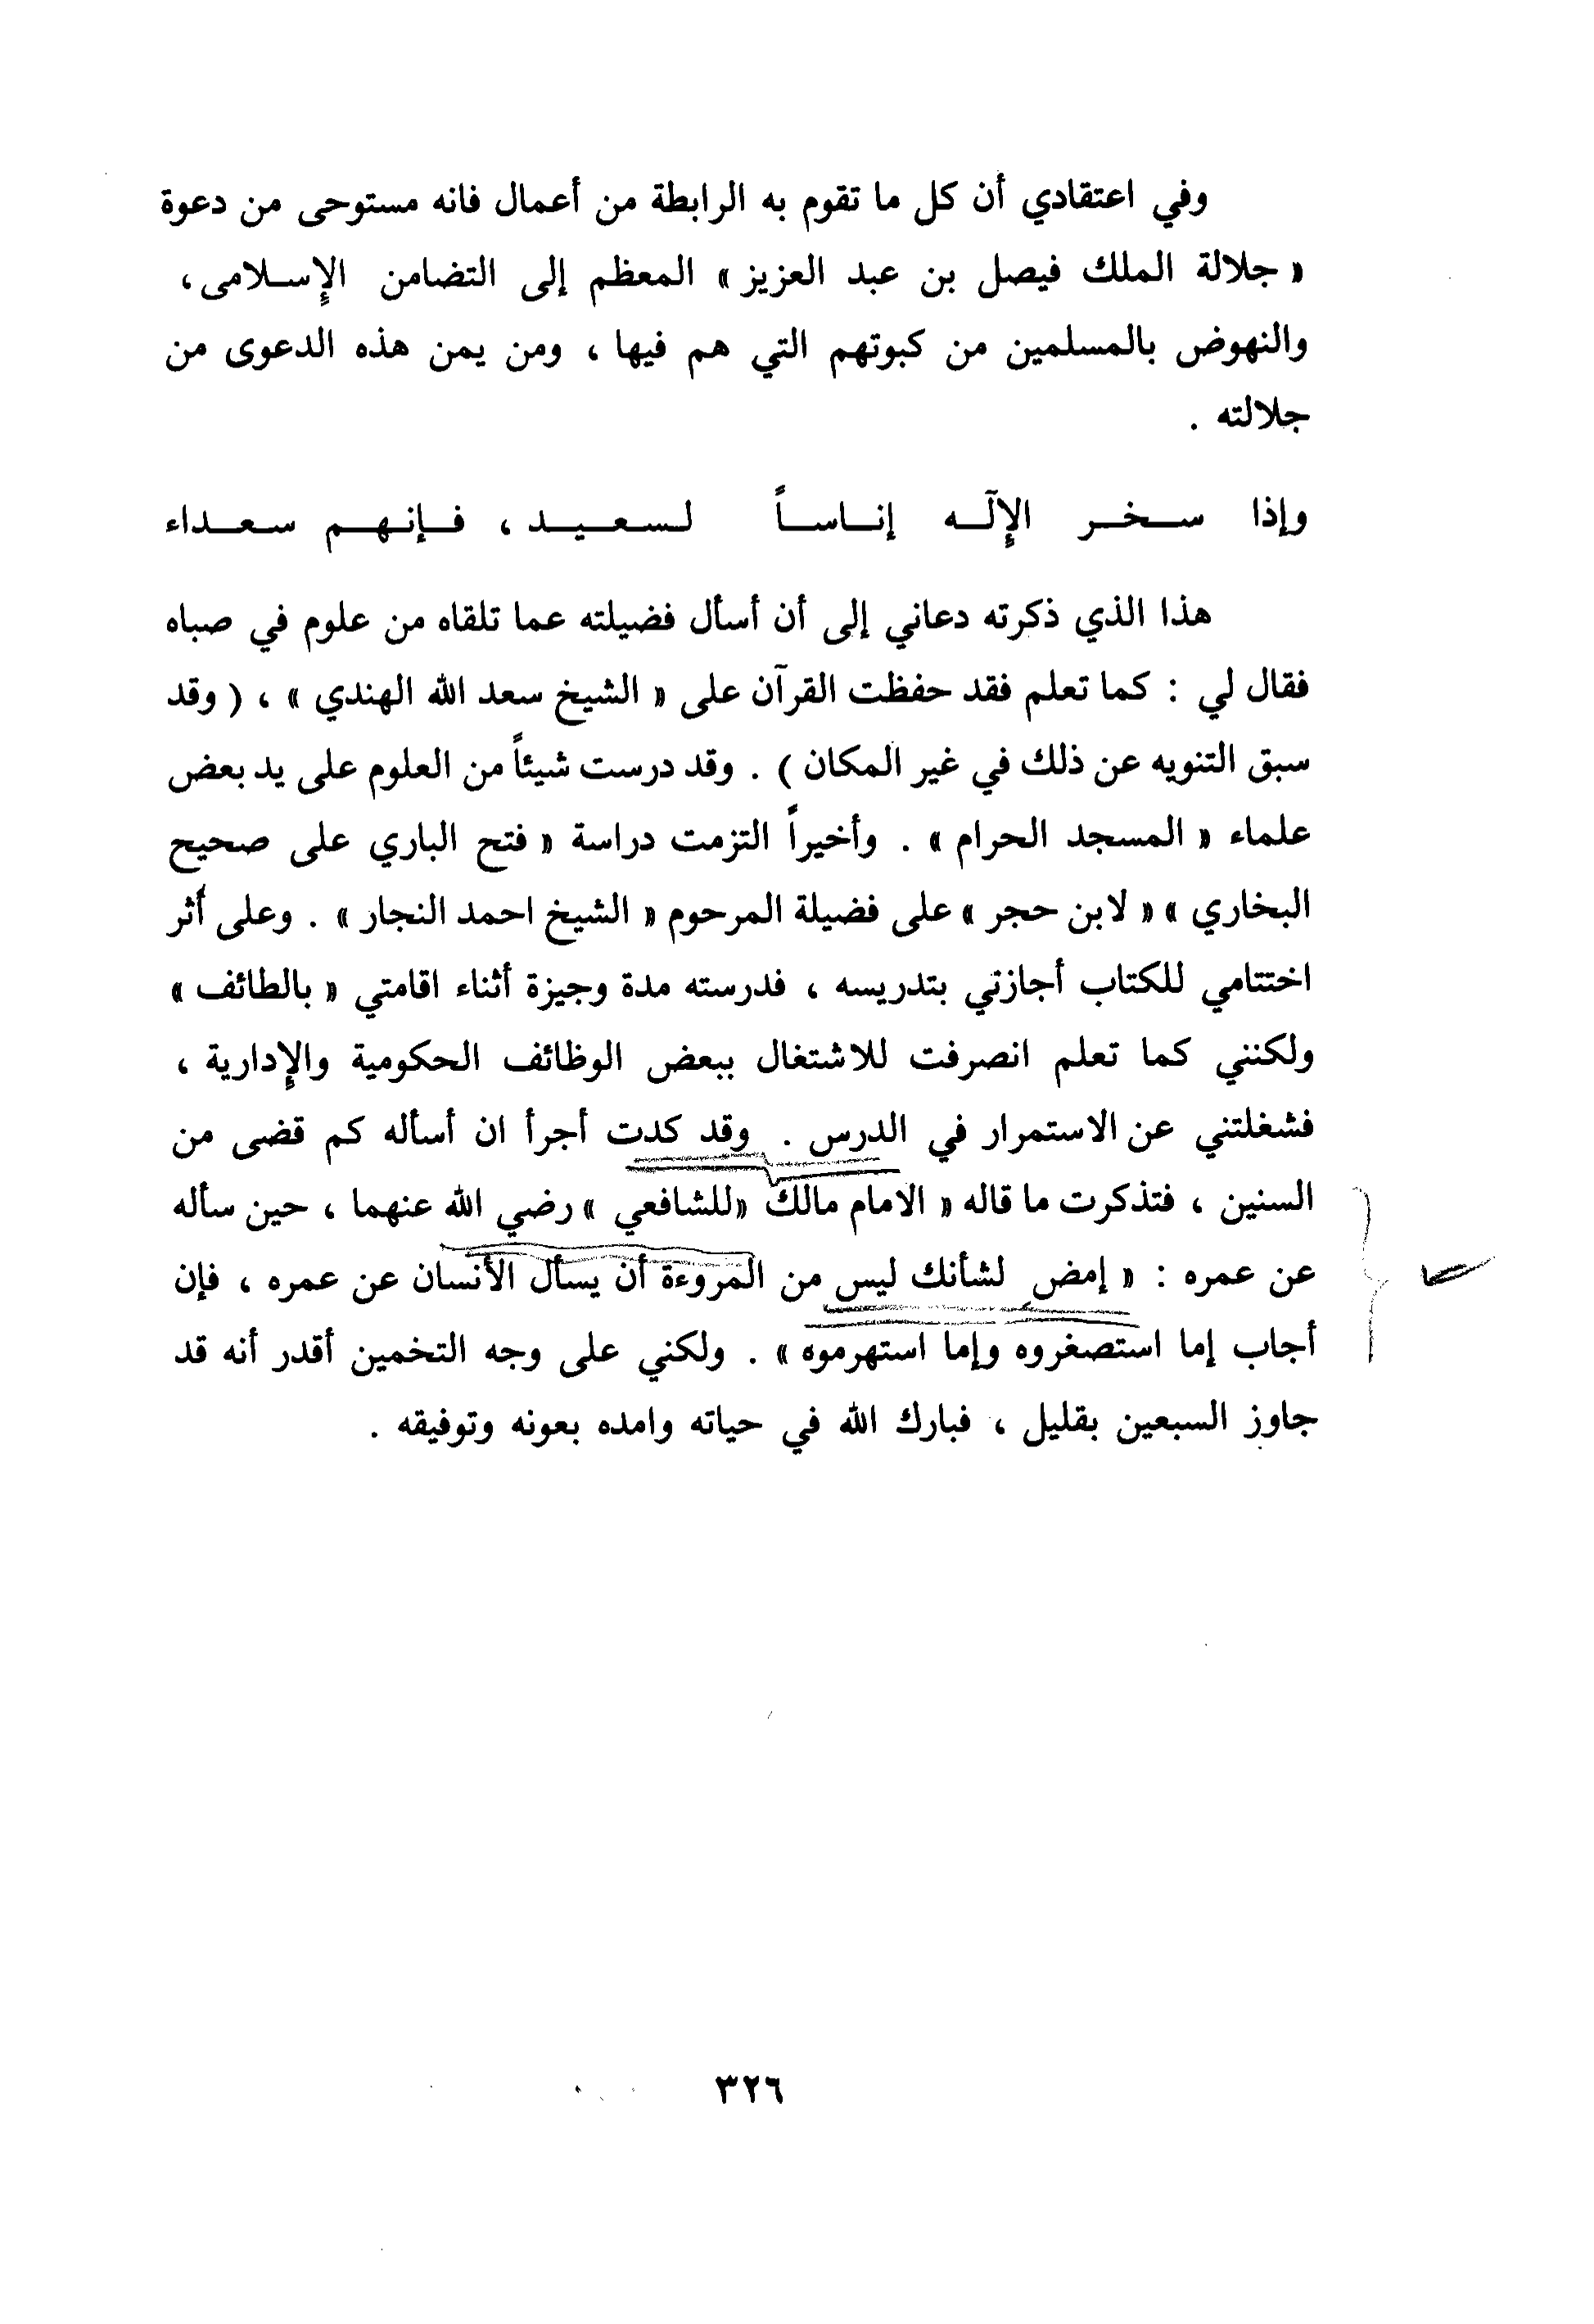 وفي اعتقادي أن كل ما تقوم به الرابطة من أعمال فانه مستوحى من دعوة
« جلالة الملك فيصل بن عبد العزيز » المعظم إلى التضامن الإسلامى ،
والنهوض بالمسلمين من كبوتهم التي هم فيها ، ومن يمن هذه الدعوى من
جلالته .
وإذا سخر الإلٓه إناساً لسعيد ، فإنهم سعداء
هذا الذي ذكرته دعاني إلى أن أسأل فضيلته عما تلقاه من علوم في صباه
فقال لي : كما تعلم فقد حفظت القرآن على « الشيخ سعد الله الهندي » ، ( وقد
سبق التنويه عن ذلك في غير المكان ) . وقد درست شيئاً من العلوم على يد بعض
علماء « المسجد الحرام » . وأخيراً التزمت دراسة « فتح الباري على صحيح
البخاري » « لابن حجر » على فضيلة المرحوم « الشيخ احمد النجار » . وعلى أثر
اختتامي للكتاب أجازتي بتدريسه ، فدرسته مدة وجيزة أثناء اقامتي « بالطائف »
ولكنني كما تعلم انصرفت للاشتغال ببعض الوظائف الحكومية والإدارية ،
فشغلتني عن الاستمرار في الدرس . وقد كدت أجرأ ان أسأله كم قضى من
السنين ، فتذكرت ما قاله « الامام مالك «للشافعي » رضي الله عنهما ، حين سأله
عن عمره : « إمض لشأنك ليس من المروءة أن يسأل الأنسان عن عمره ، فإن
أجاب إما استصغروه وإما استهرموه » . ولكني على وجه التخمين أقدر أنه قد
جاوز السبعين بقليل ، فبارك الله في حياته وامده بعونه وتوفيقه .
٣٢٦